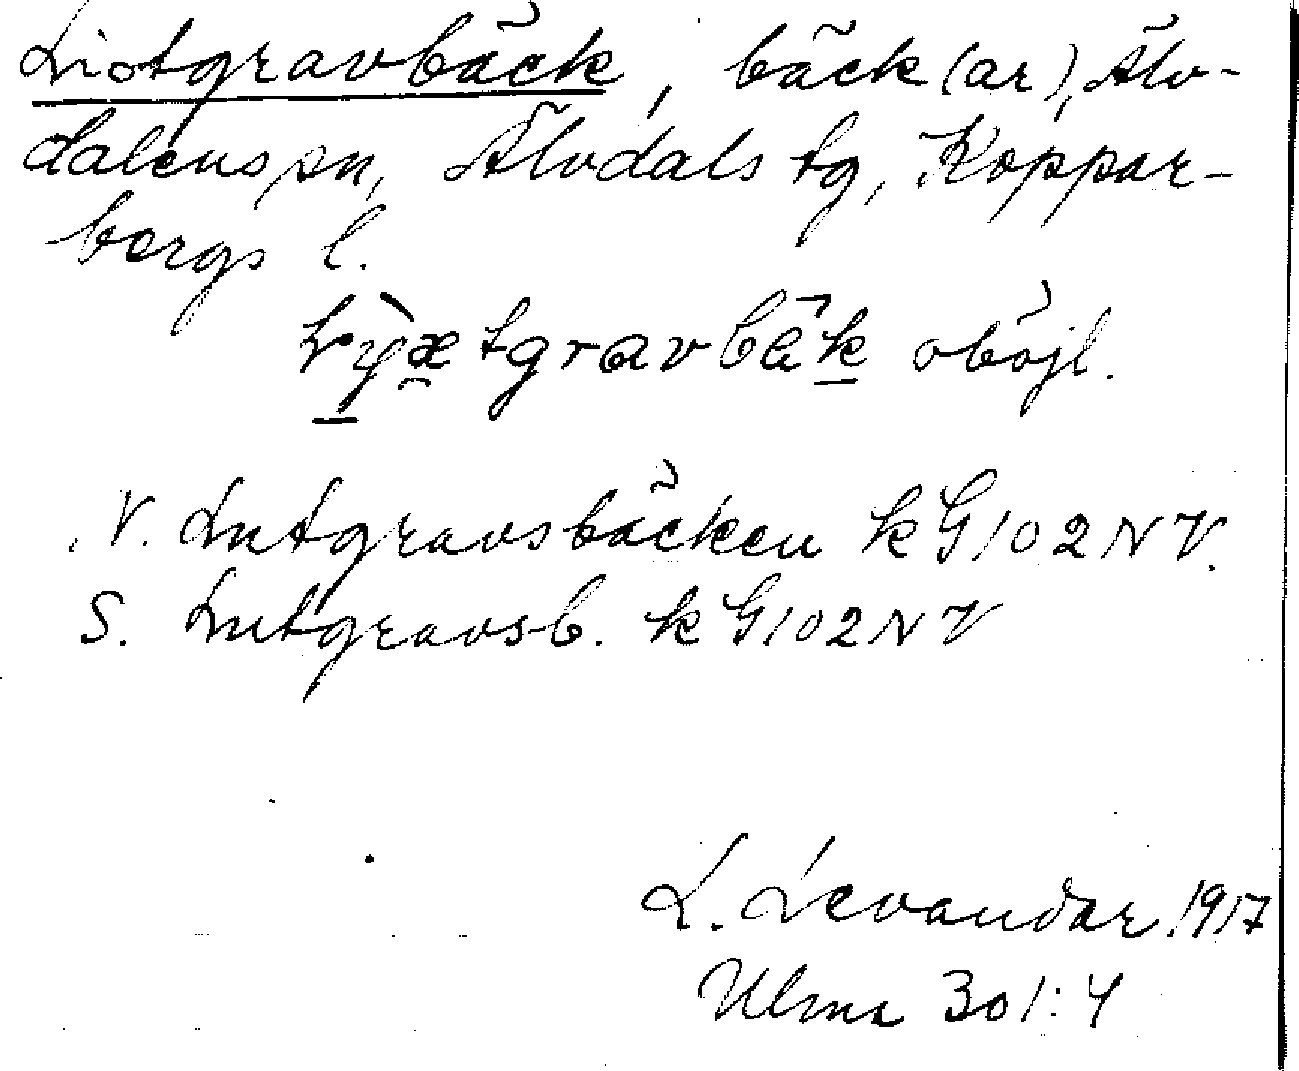 Liotgravbäck, bäck(ar), Älv-
dalens sn, Älvdals tg, Koppar-
bergs l.
oböjl.
N. Lutgravsbäcken k G 102 NV.
S. Lutgravsb. k G 102 NV
L. Levander 1917
Ulma 301:4